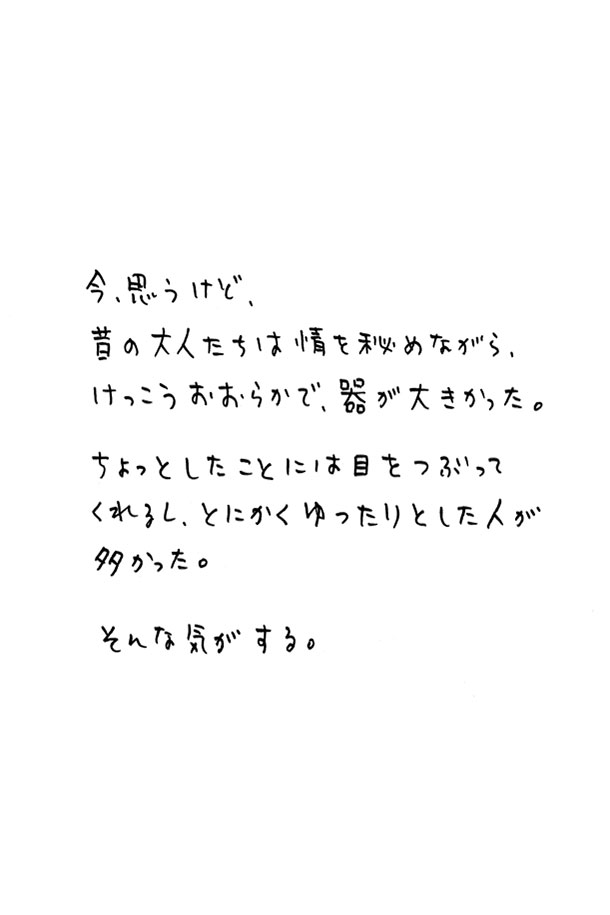 今、思うけど、
昔の大人たちは情を秘めながら、
けっこうおおらかで、器が大きかった。
ちょっとしたことには目をつぶって
くれるし、とにかくゆったりとした人が
多かった。
そんな気がする。